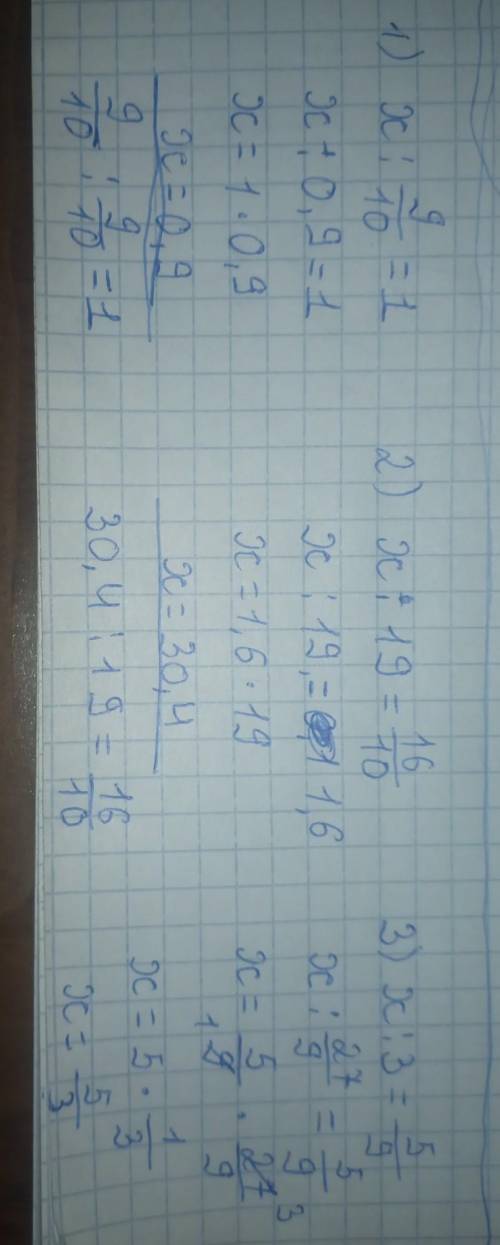 1) x : 9/10 = 1
x : 0,9 = 1
x = 1 · 0,9
x = 0,9
9/10 : 9/10 = 1
2) x : 19 = 16/10
x : 19 = 1,6
x = 1,6 · 19
x = 30,4
30,4 : 19 = 16/10
3) x : 3 = 5/9
x : 27/9 = 5/9
x = 5/9 · 27/9
x = 5 · 1/3
x = 5/3